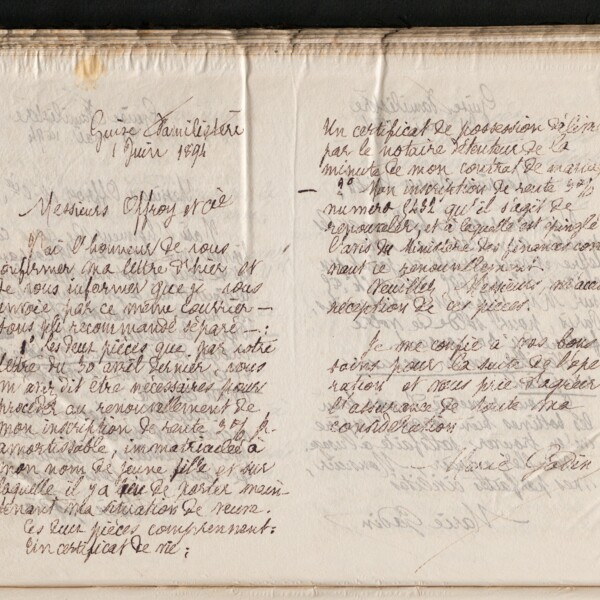 Guise Familistère
1 Juin 1894
Messieurs Offroy et Cie
J'ai l'honneur de vous
confirmer ma lettre d'hier et
de vous informer que je vous
envoie par ce même courrier —
sous pli recommandé séparé — :
1° Les deux pièces que par votre
lettre du 30 avril dernier, vous
m'avez dit être nécessaires pour
procéder au renouvellement de
mon inscription de rente 3 %
amortissable, immatriculée à
mon nom de jeune fille et sur
laquelle il y a lieu de porter main-
tenant ma situation de veuve.
Ces deux pièces comprennent:
Un certificat de vie;
Un certificat de possession
par le notaire détenteur de la
minute de mon contrat de
— 2° Mon inscription de rente 3 %
numéro qu'il s'agit de
renouveler et à laquelle est épinglé
l'avis du Ministère des finances
ce renouvellement.
Veuillez, Messieurs,
réception de ces pièces.
Je me confie à vos bons
soins pour la suite de l'opé
ration et vous prie d'agréer
l'assurance de toute ma
considération
Marie Godin